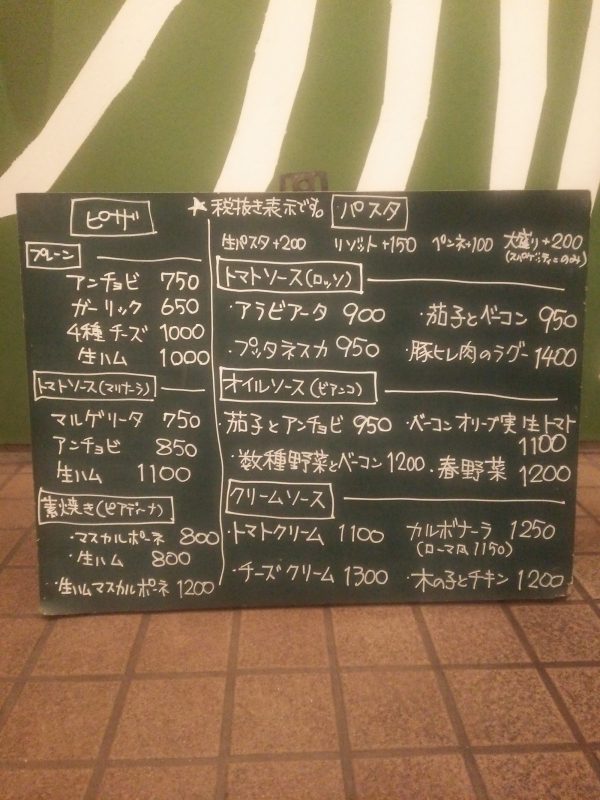 ピザ
プレーン
アンチョビ 750
ガーリック 650
4種チーズ 1000
生ハム 1000
トマトソース(マリナーラ)
マルゲリータ 750
アンチョビ 850
生ハム 1100
素焼き(ピアディーナ)
・マスカルポーネ 800
・生ハム 800
・生ハムマスカルポーネ 1200
★税抜き表示です。
パスタ
生パスタ+200 リゾット+150 ペンネ+100 大盛り+200
(スパゲッティーニのみ)
トマトソース(ロッソ)
・アラビアータ 900 ・茄子とベーコン 950
・プッタネスカ 950 ・豚ヒレ肉のラグー 1400
オイルソース(ビアンコ)
・茄子とアンチョビ 950 ・ベーコンオリーブ実 生トマト
1100
・数種野菜とベーコン 1200 ・春野菜 1200
クリームソース
・トマトクリーム 1100 カルボナーラ 1250
(ローマ風 1150)
・チーズクリーム 1300 ・木の子とチキン 1200